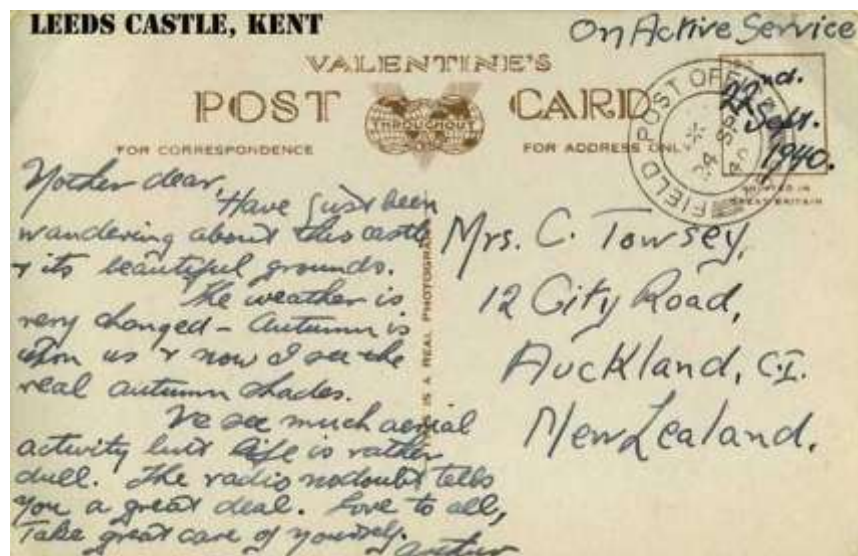 LEEDS CASTLE, KENT
On Active Service
VALENTINE'S
POST CARD
THROUGHOUT
FOR CORRESPONDENCE
FOR ADDRESS ONLY
FIELD POST OFFICE
24 SP 40
22nd.
Sept.
1940.
PRINTED IN
GREAT BRITAIN
Mother dear,
Have just been
wandering about this castle
& its beautiful grounds.
The weather is
very changed - Autumn is
upon us & now I see the
real autumn shades.
We see much aerial
activity but life is rather
dull. The radio nodoubt tells
you a great deal. Love to all,
Take great care of yourself.
Arthur
THIS IS A REAL PHOTOGRAPH
Mrs. C. Towsey,
12 City Road,
Auckland, C.I.
New Zealand.